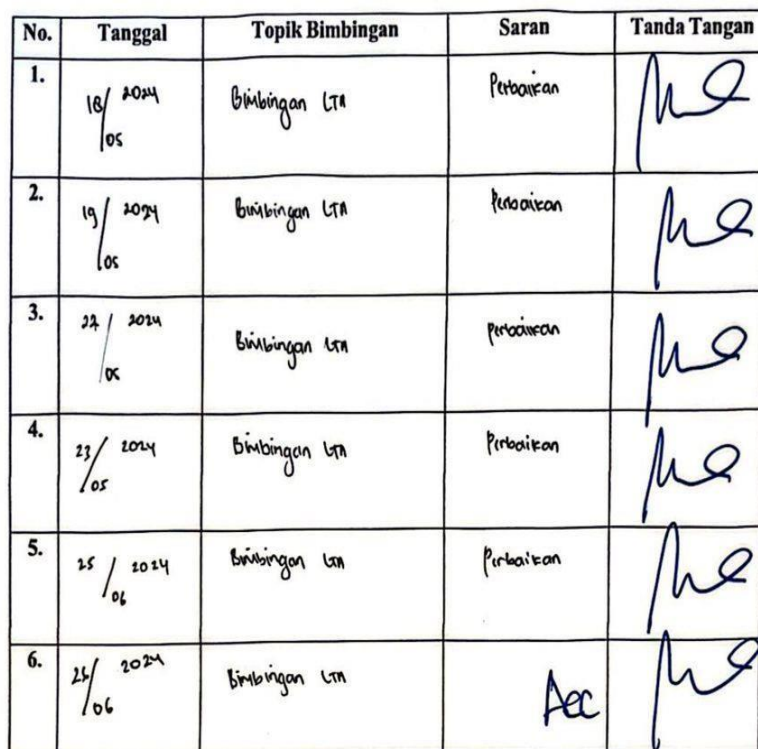 No. Tanggal Topik Bimbingan Saran Tanda Tangan
1. 18/05 2024 Bimbingan LTA Perbaikan
2. 19/05 2024 Bimbingan LTA Perbaikan
3. 22/05 2024 Bimbingan LTA Perbaikan
4. 23/05 2024 Bimbingan LTA Perbaikan
5. 25/06 2024 Bimbingan LTA Perbaikan
6. /06 2024 Bimbingan LTA Acc